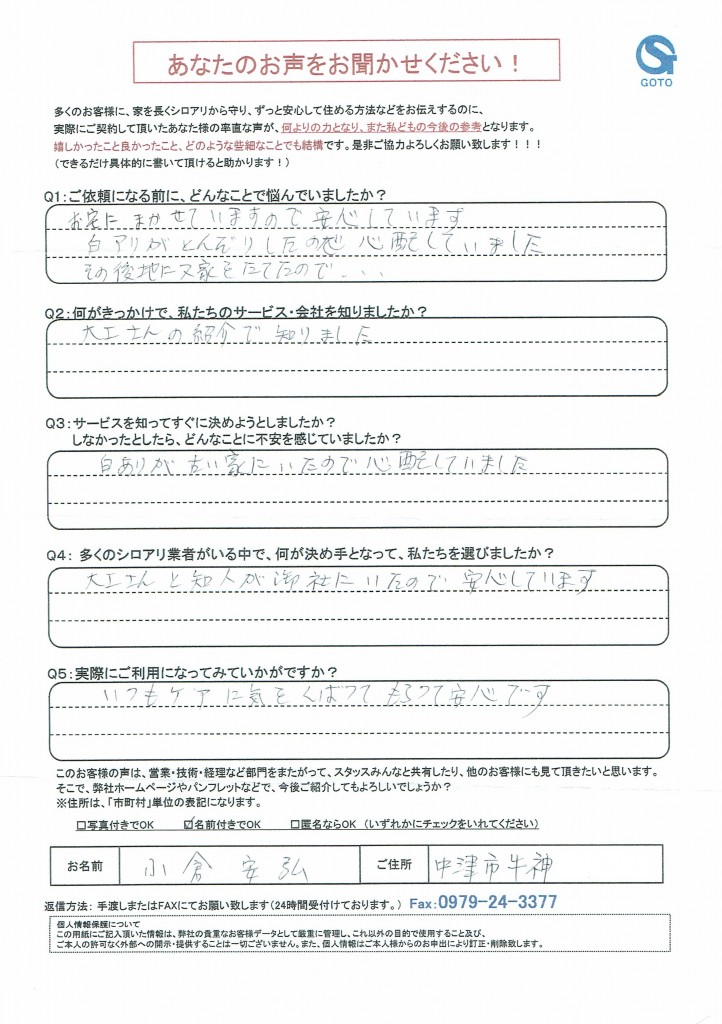 あなたのお声をお聞かせください！
GOTO
多くのお客様に、家を長くシロアリから守り、ずっと安心して住める方法などをお伝えするのに、
実際にご契約して頂いたあなた様の率直な声が、何よりの力となり、また私どもの今後の参考となります。
嬉しかったこと良かったこと、どのような些細なことでも結構です。是非ご協力よろしくお願い致します！！！
（できるだけ具体的に書いて頂けると助かります！）
Q1：ご依頼になる前に、どんなことで悩んでいましたか？
お宅にまかせていますので安心しています
白アリがとんだりしたので心配していました
その後地に又家をたてたので...
Q2：何がきっかけで、私たちのサービス・会社を知りましたか？
大工さんの紹介で知りました
Q3：サービスを知ってすぐに決めようとしましたか？
しなかったとしたら、どんなことに不安を感じていましたか？
白ありが古い家にいたので心配していました
Q4： 多くのシロアリ業者がいる中で、何が決め手となって、私たちを選びましたか？
大工さんと知人が御社にいたので安心しています
Q5：実際にご利用になってみていかがですか？
いつもケアに気をくばってもらって安心です
このお客様の声は、営業・技術・経理など部門をまたがって、スタッスみんなと共有したり、他のお客様にも見て頂きたいと思います。
そこで、弊社ホームページやパンフレットなどで、今後ご紹介してもよろしいでしょうか？
※住所は、「市町村」単位の表記になります。
□写真付きでOK ☑名前付きでOK □匿名ならOK （いずれかにチェックをいれてください）
お名前 小倉 安弘 ご住所 中津市牛神
返信方法： 手渡しまたはFAXにてお願い致します（24時間受付けております。） Fax：0979-24-3377
個人情報保護について
この用紙にご記入頂いた情報は、弊社の貴重なお客様データとして厳重に管理し、これ以外の目的で使用すること及び、
ご本人の許可なく外部への開示・提供することは一切ございません。また、個人情報はご本人様からのお申出により訂正・削除致します。